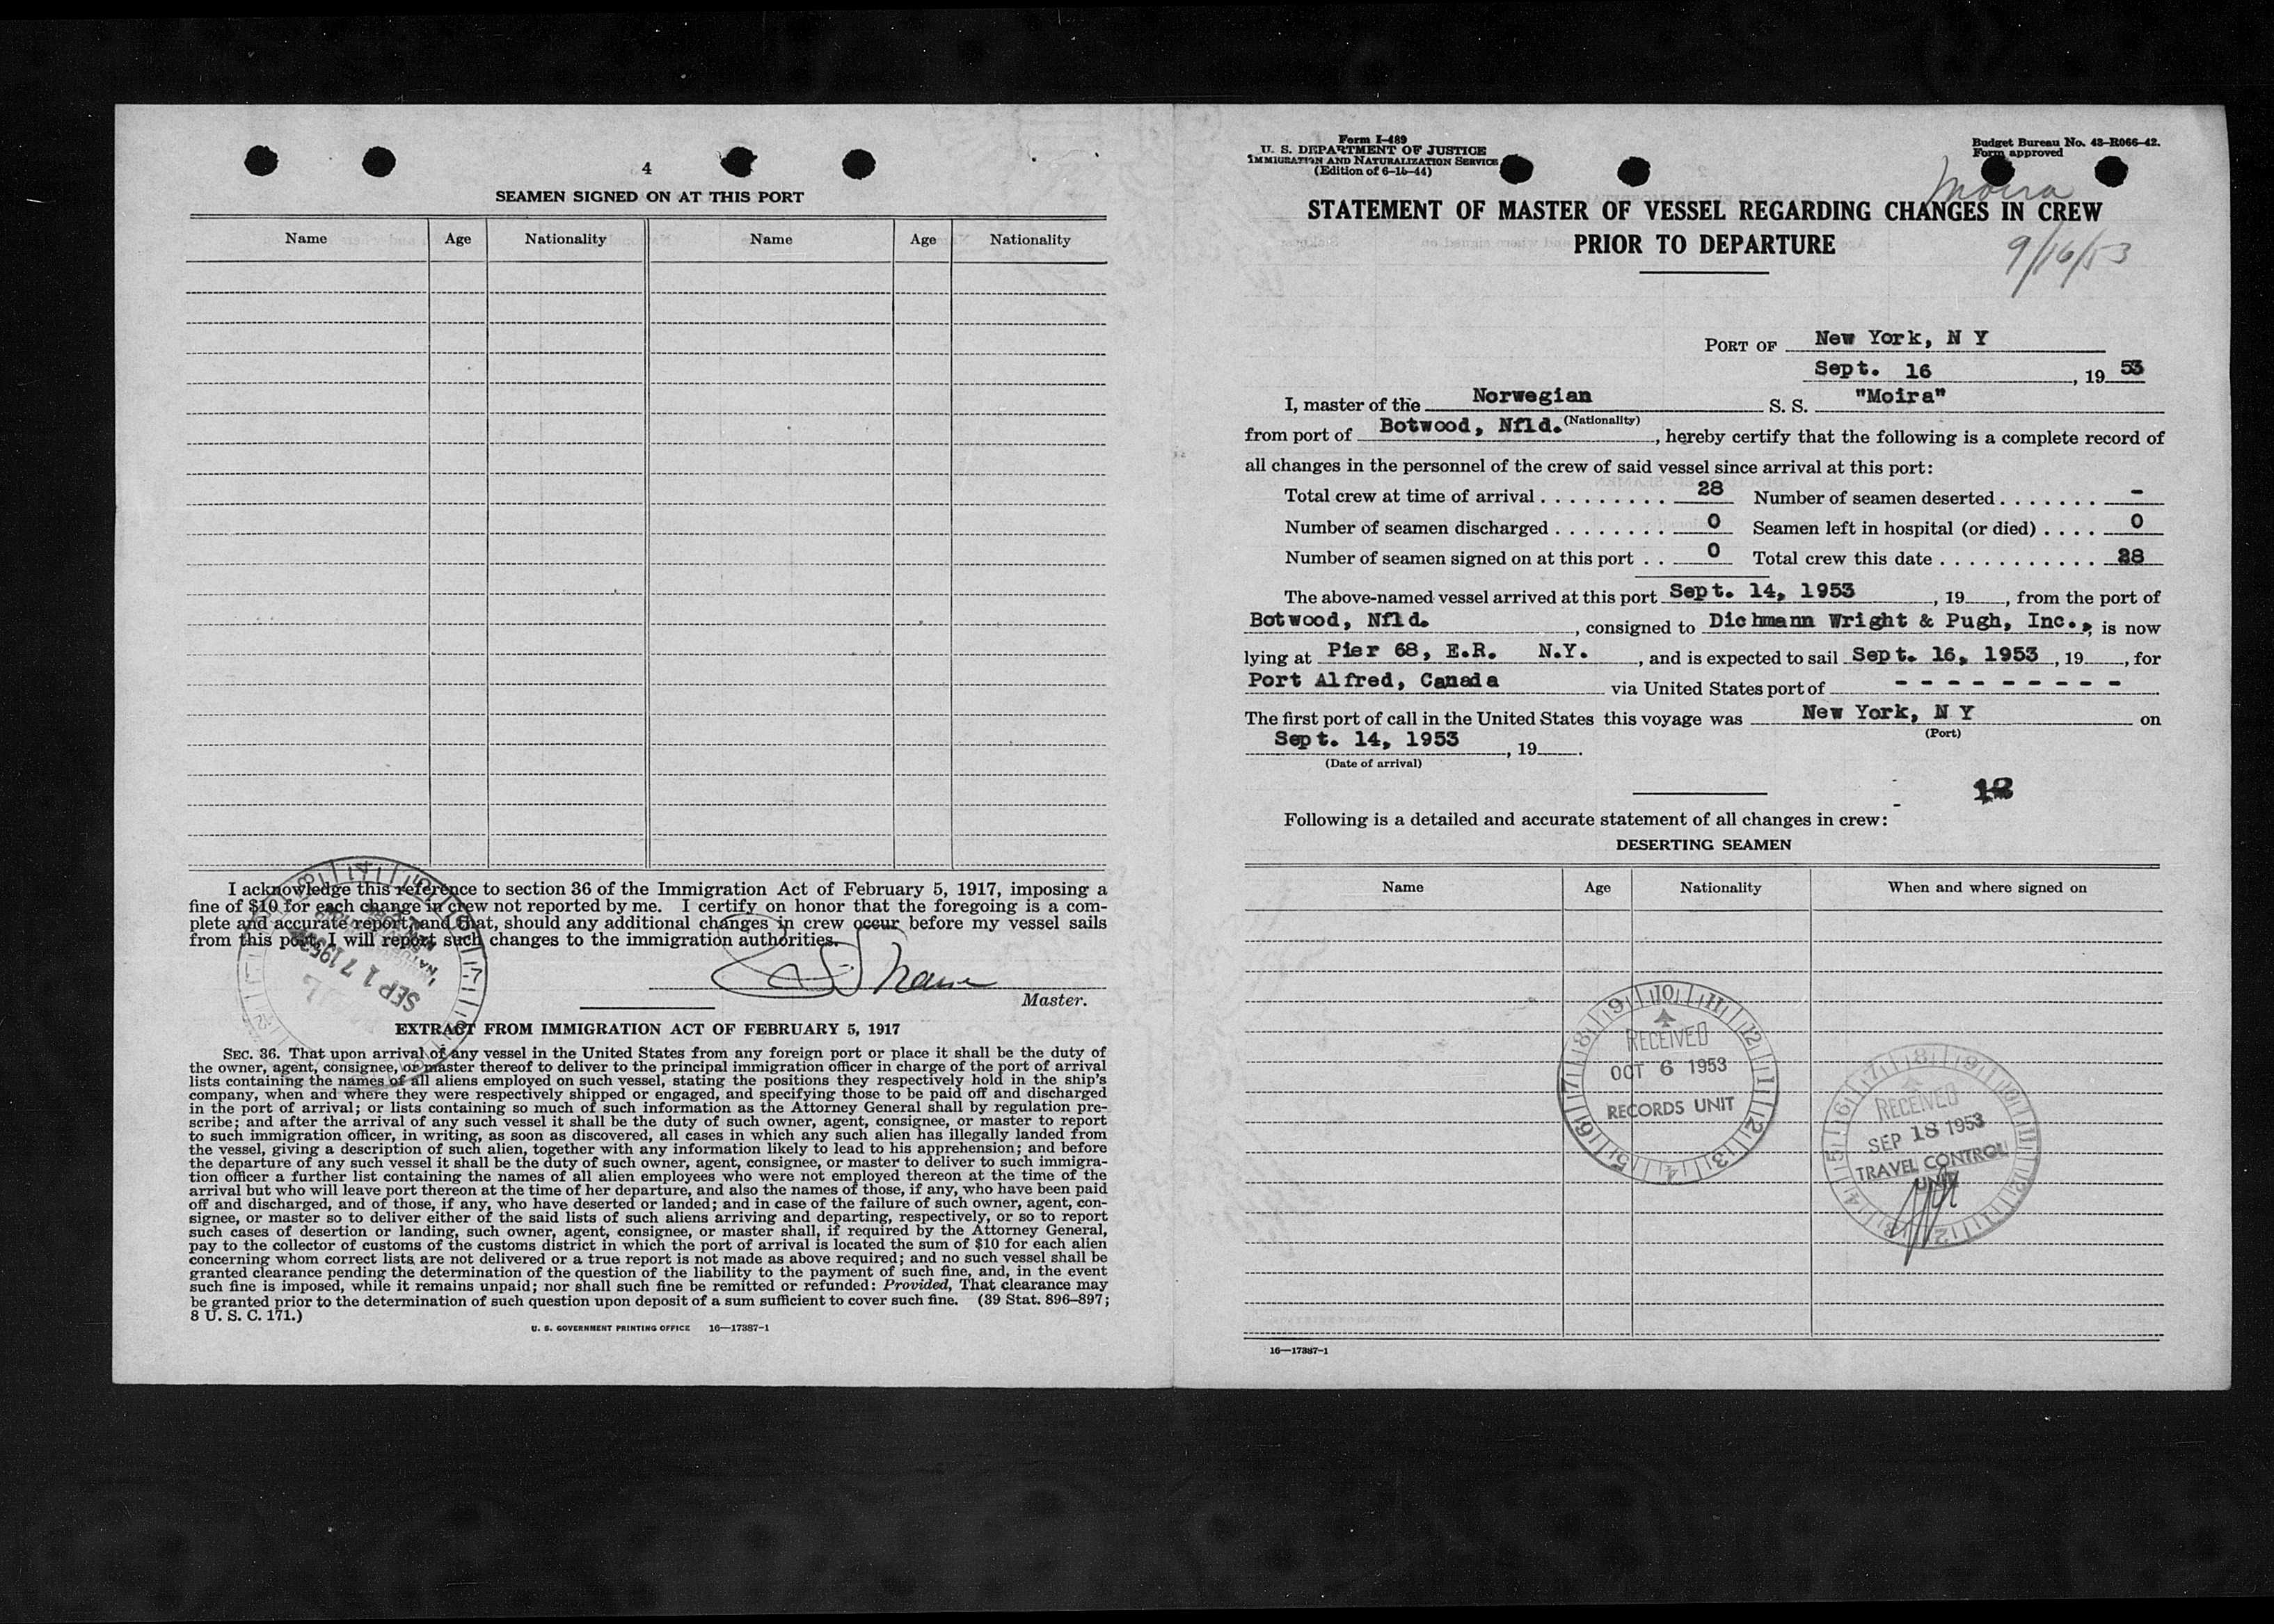 4
SEAMEN SIGNED ON AT THIS PORT
Name Age Nationality Name Age Nationality
I acknowledge this reference to section 36 of the Immigration Act of February 5, 1917, imposing a
fine of $10 for each change in crew not reported by me. I certify on honor that the foregoing is a com-
plete and accurate report, and that, should any additional changes in crew occur before my vessel sails
from this port, I will report such changes to the immigration authorities.
SEP 17 1953
Master.
EXTRACT FROM IMMIGRATION ACT OF FEBRUARY 5, 1917
SEC. 36. That upon arrival of any vessel in the United States from any foreign port or place it shall be the duty of
the owner, agent, consignee, or master thereof to deliver to the principal immigration officer in charge of the port of arrival
lists containing the names of all aliens employed on such vessel, stating the positions they respectively hold in the ship's
company, when and where they were respectively shipped or engaged, and specifying those to be paid off and discharged
in the port of arrival; or lists containing so much of such information as the Attorney General shall by regulation pre-
scribe; and after the arrival of any such vessel it shall be the duty of such owner, agent, consignee, or master to report
to such immigration officer, in writing, as soon as discovered, all cases in which any such alien has illegally landed from
the vessel, giving a description of such alien, together with any information likely to lead to his apprehension; and before
the departure of any such vessel it shall be the duty of such owner, agent, consignee, or master to deliver to such immigra-
tion officer a further list containing the names of all alien employees who were not employed thereon at the time of the
arrival but who will leave port thereon at the time of her departure, and also the names of those, if any, who have been paid
off and discharged, and of those, if any, who have deserted or landed; and in case of the failure of such owner, agent, con-
signee, or master so to deliver either of the said lists of such aliens arriving and departing, respectively, or so to report
such cases of desertion or landing, such owner, agent, consignee, or master shall, if required by the Attorney General,
pay to the collector of customs of the customs district in which the port of arrival is located the sum of $10 for each alien
concerning whom correct lists are not delivered or a true report is not made as above required; and no such vessel shall be
granted clearance pending the determination of the question of the liability to the payment of such fine, and, in the event
such fine is imposed, while it remains unpaid; nor shall such fine be remitted or refunded: Provided, That clearance may
be granted prior to the determination of such question upon deposit of a sum sufficient to cover such fine. (39 Stat. 896–897;
8 U. S. C. 171.)
U. S. GOVERNMENT PRINTING OFFICE 16—17387-1
Form I-489
U. S. DEPARTMENT OF JUSTICE
IMMIGRATION AND NATURALIZATION SERVICE
(Edition of 6-15-44)
Budget Bureau No. 43-R066-42.
Form approved
Moira
STATEMENT OF MASTER OF VESSEL REGARDING CHANGES IN CREW
PRIOR TO DEPARTURE
9/16/53
PORT OF New York, N Y
Sept. 16, 1953
I, master of the Norwegian S. S. "Moira"
(Nationality)
from port of Botwood, Nfld., hereby certify that the following is a complete record of
all changes in the personnel of the crew of said vessel since arrival at this port:
Total crew at time of arrival . . . . . . . . . 28 Number of seamen deserted . . . . . . . -
Number of seamen discharged . . . . . . . . 0 Seamen left in hospital (or died) . . . . 0
Number of seamen signed on at this port . . 0 Total crew this date . . . . . . . . . . . 28
The above-named vessel arrived at this port Sept. 14, 1953, 19, from the port of
Botwood, Nfld., consigned to Dichmann Wright & Pugh, Inc., is now
lying at Pier 68, E.R. N.Y., and is expected to sail Sept. 16, 1953, 19, for
Port Alfred, Canada via United States port of - - - - - - - - -
The first port of call in the United States this voyage was New York, N Y on
(Port)
Sept. 14, 1953, 19.
(Date of arrival)
12
Following is a detailed and accurate statement of all changes in crew:
DESERTING SEAMEN
Name Age Nationality When and where signed on
RECEIVED
OCT 6 1953
RECORDS UNIT
RECEIVED
SEP 18 1953
TRAVEL CONTROL
UNIT
16—17387-1